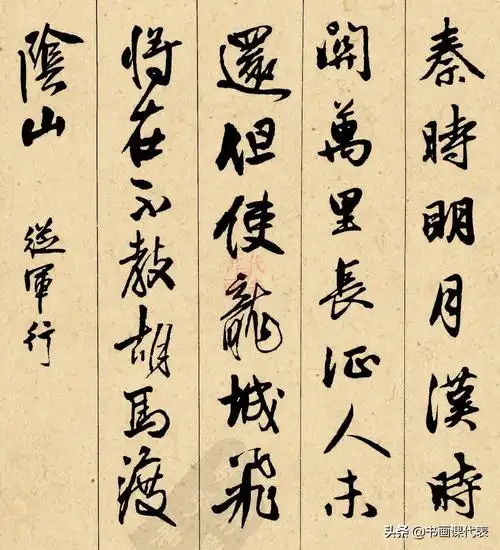 秦時明月漢時
関萬里長征人未
還但使龍城飛
将在不教胡馬渡
陰山
從軍行
头条@书画课代表